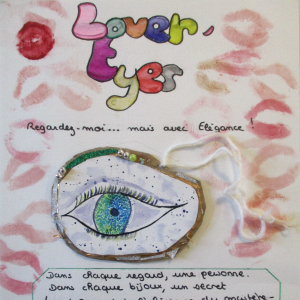 Lover-
Eyes
Regardez-moi... mais avec Elégance !
Dans chaque regard, une personne.
Dans chaque bijou, un secret